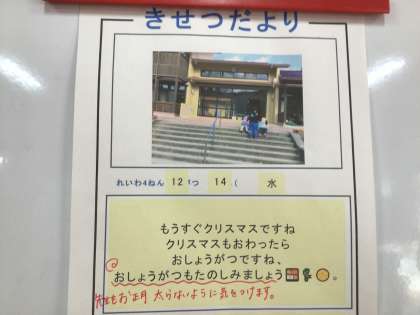 きせつだより
れいわ4ねん 12 がつ 14 ( 水
もうすぐクリスマスですね
クリスマスもおわったら
おしょうがつですね、
おしょうがつもたのしみましょう🍱🎍🟠。
先生もお正月 太らないように気をつけます。